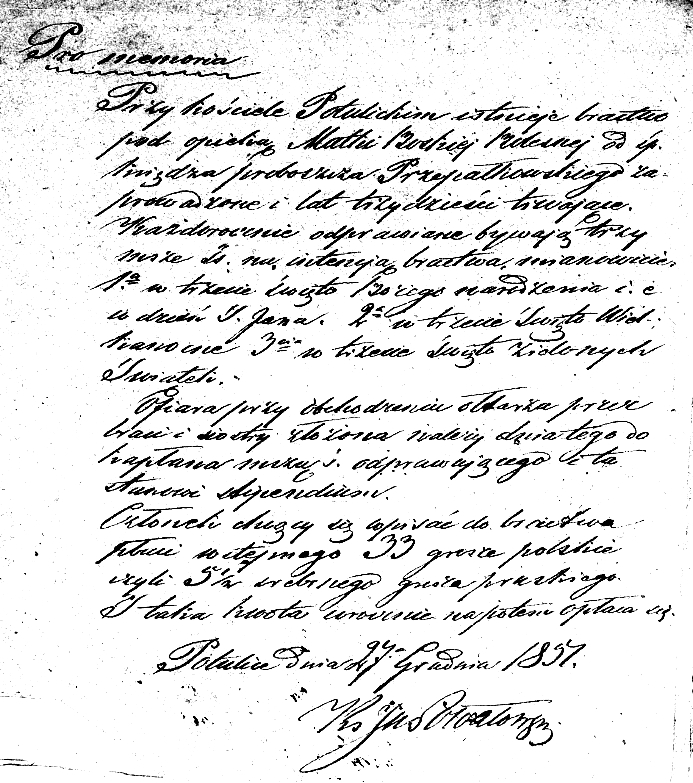 Pro memoria
Przy kościele Potulickim istnieje bractwo
pod opieką Matki Boskiej Bolesnej od śp.
księdza proboszcza Przepałkowskiego za-
prowadzone i lat trzydzieści trwające.
Każdorocznie odprawiane bywają trzy
msze ś. na intencyją bractwa, mianowicie
1.a w trzecie święto Bożego narodzenia i. e
w dzień S. Jana. 2a w trzecie święto Wiel-
kanocne 3cia w trzecie święto Zielonych
Świątek.-
Ofiara przy obchodzeniu ołtarza przez
braci i siostry złożona należy dnia tego do
kapłana mszą ś. odprawiającego i ta
stanowi stipendium.
Członek chcący się wpisać do bractwa
płaci wstępnego 33 grosze polskie
czyli 5 1/2 srebrnego grosza pruskiego.
I takia kwota corocznie napotem opłaca się.
Potulice dnia 27 Grudnia 1857.
Ks